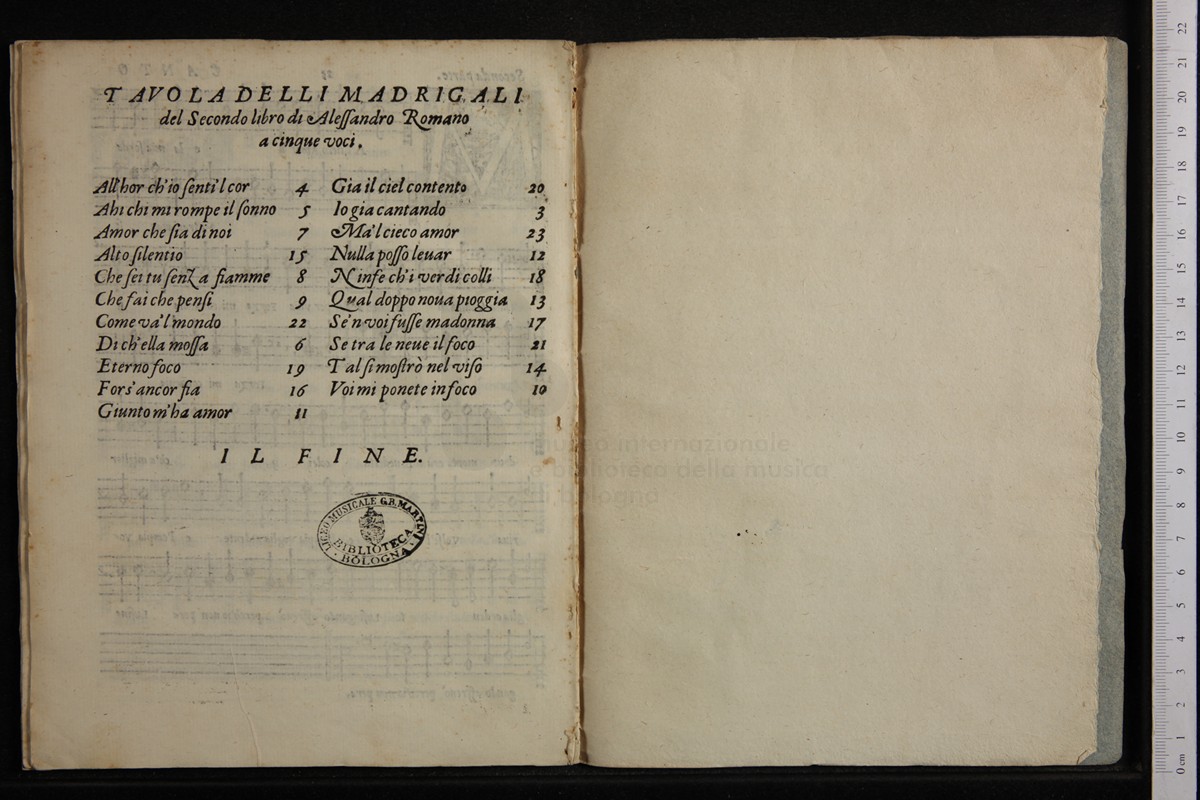 TAVOLA DELLI MADRIGALI
del Secondo libro di Alessandro Romano
a cinque voci.
All'hor ch'io senti'l cor 4
Ahi chi mi rompe il sonno 5
Amor che sia di noi 7
Alto silentio 15
Che sei tu senza fiamme 8
Che fai che pensi 9
Come va'l mondo 22
Di ch'ella mossa 6
Eterno foco 19
Fors'ancor fia 16
Giunto m'ha amor 11
Gia il ciel contento 20
Io gia cantando 3
Ma'l cieco amor 23
Nulla posso levar 12
Ninfe ch'i verdi colli 18
Qual doppo noua pioggia 13
Se'n voi fusse madonna 17
Se tra le neue il foco 21
Tal si mostrò nel viso 14
Voi mi ponete in foco 10
IL FINE.
LICEO MUSICALE G.B. MARTINI
BIBLIOTECA
BOLOGNA
museo internazionale
e biblioteca della musica
di bologna
0 cm 1 2 3 4 5 6 7 8 9 10 11 12 13 14 15 16 17 18 19 20 21 22